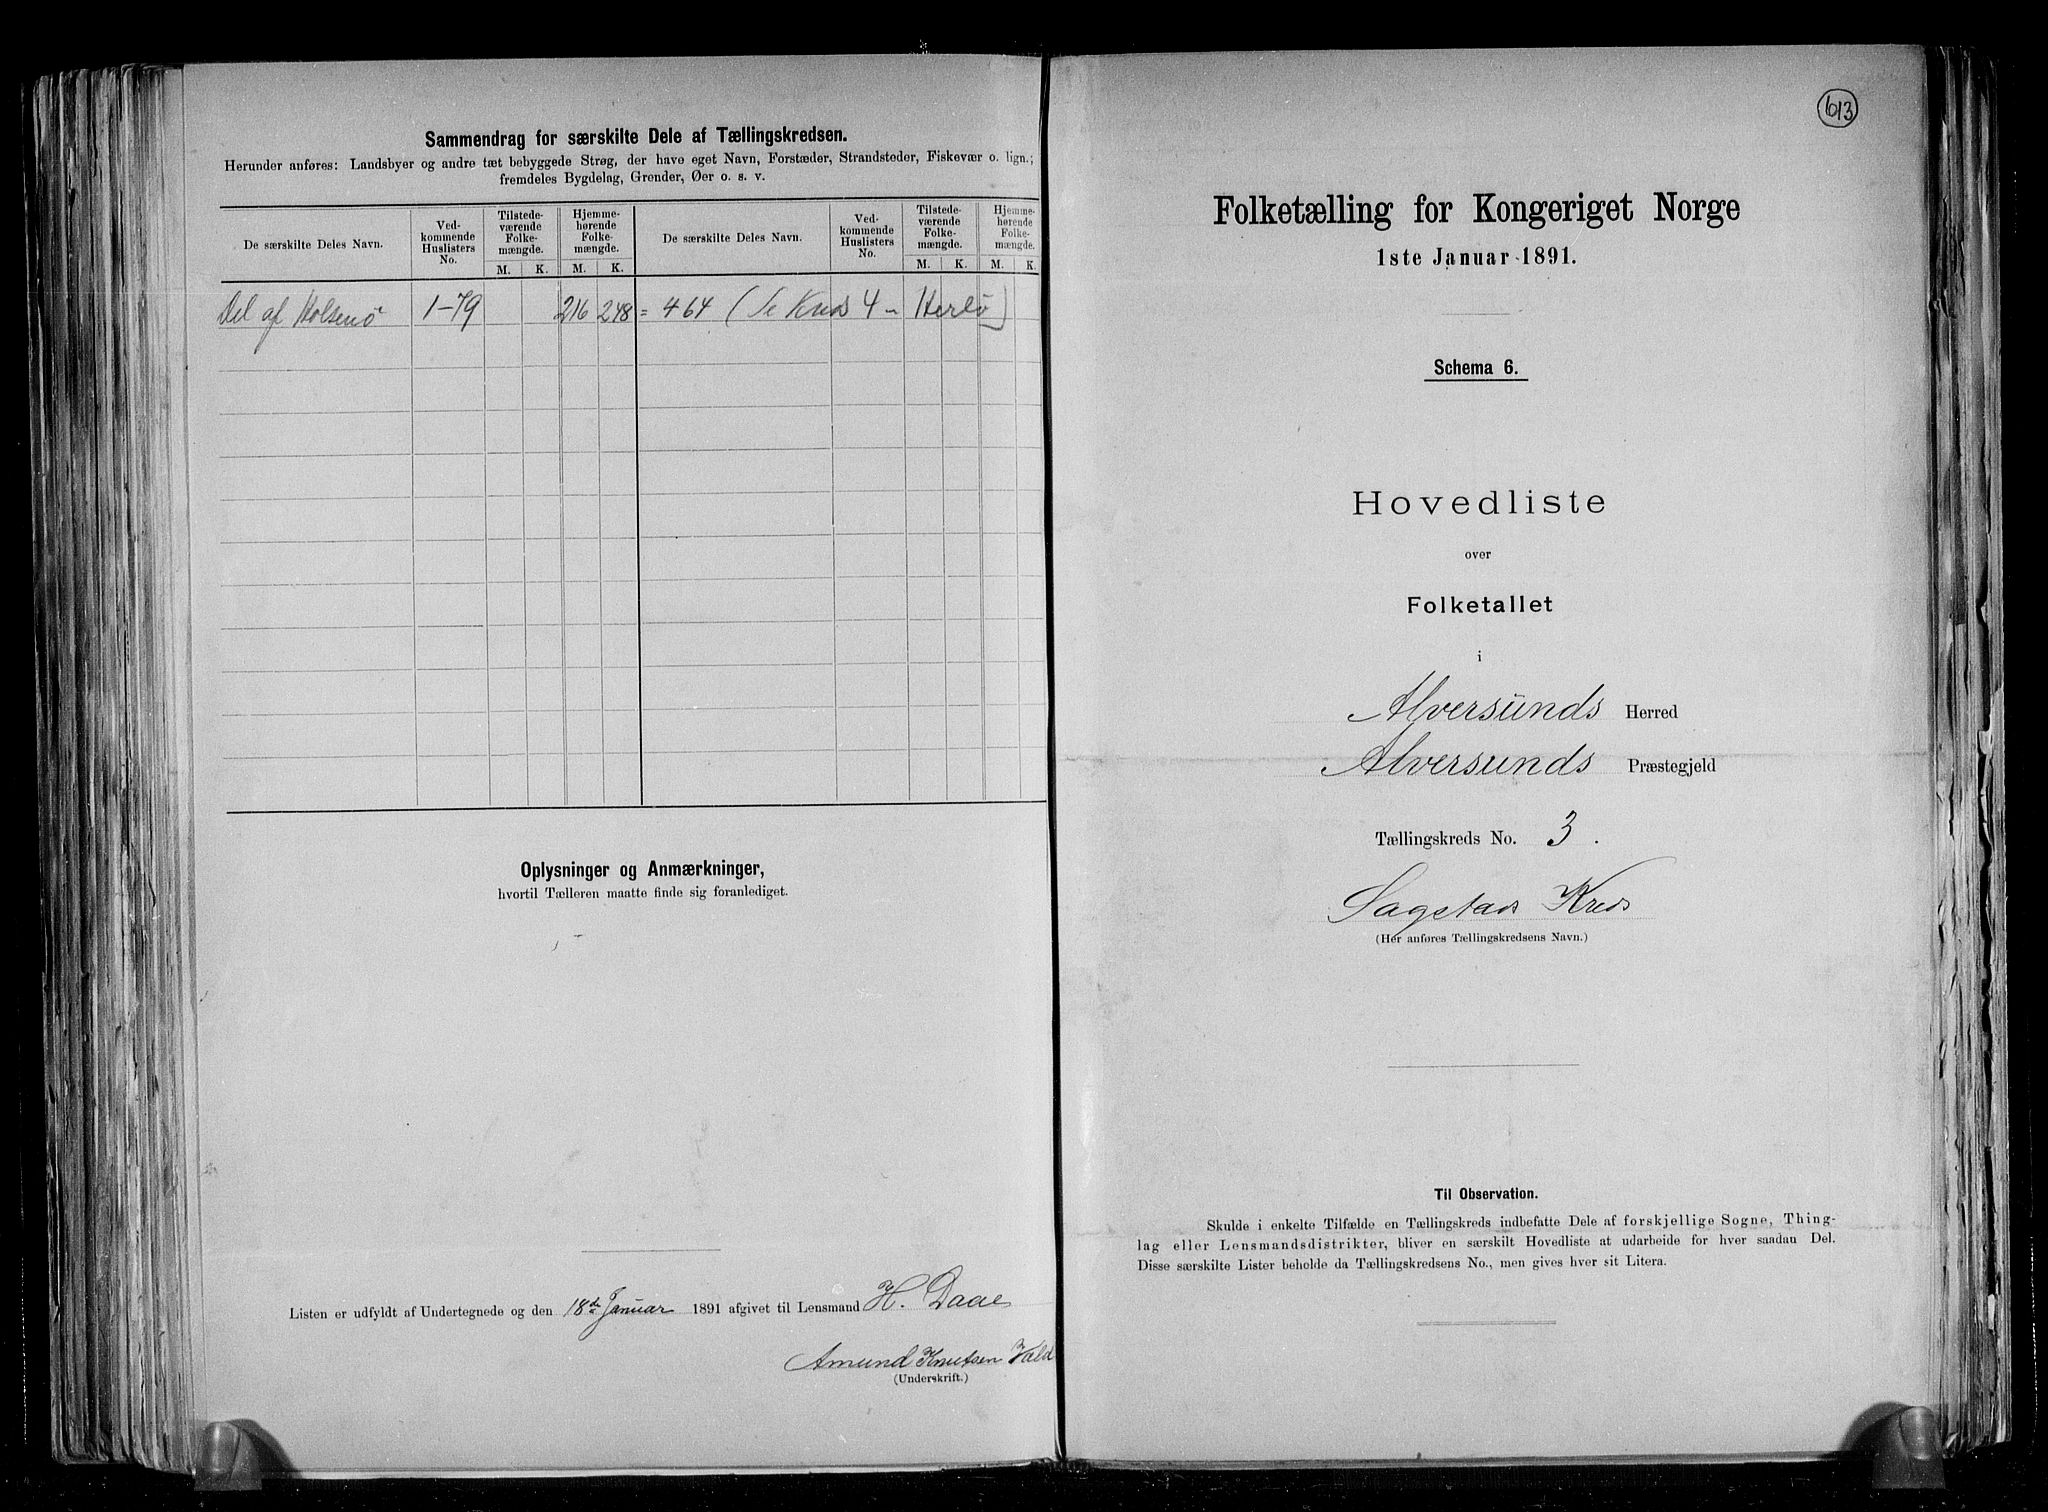 Sammendrag for særskilte Dele af Tællingskredsen.
Herunder anføres: Landsbyer og andre tæt bebyggede Strøg, der have eget Navn, Forstæder, Strandsteder, Fiskevær o. lign.;
fremdeles Bygdelag, Grender, Øer o. s. v.
De særskilte Deles Navn. Ved-kommende Huslisters No. Tilstede-værende Folke-mængde. Hjemme-hørende Folke-mængde. De særskilte Deles Navn. Ved-kommende Huslisters No. Tilstede-værende Folke-mængde. Hjemme-hørende Folke-mængde.
M. K. M. K. M. K. M. K.
Del af Holsenö 1-79 216 248 = 464 (Se Kreds 4 - Herlö)
Oplysninger og Anmærkninger,
hvortil Tælleren maatte finde sig foranlediget.
Listen er udfyldt af Undertegnede og den 18de Januar 1891 afgivet til Lensmand H. Daae
Amund Knutsen Vold
(Underskrift.)
613
Folketælling for Kongeriget Norge
1ste Januar 1891.
Schema 6.
Hovedliste
over
Folketallet
i
Alversunds Herred
Alversunds Præstegjeld
Tællingskreds No. 3.
Sagstad Kreds
(Her anføres Tællingskredsens Navn.)
Til Observation.
Skulde i enkelte Tilfælde en Tællingskreds indbefatte Dele af forskjellige Sogne, Thing-
lag eller Lensmandsdistrikter, bliver en særskilt Hovedliste at udarbeide for hver saadan Del.
Disse særskilte Lister beholde da Tællingskredsens No., men gives hver sit Litera.